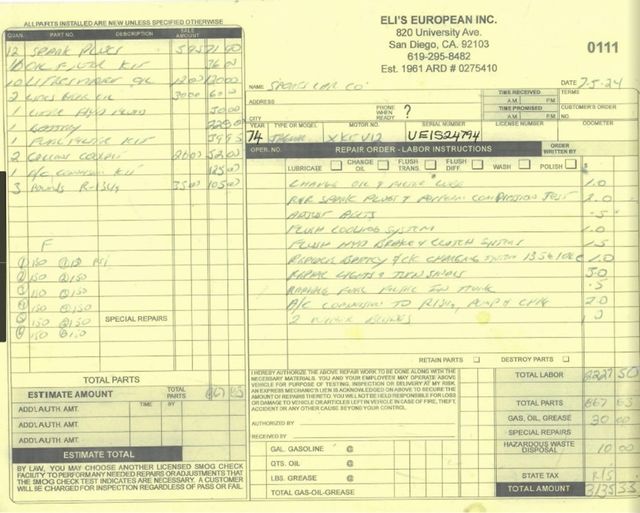 ALL PARTS INSTALLED ARE NEW UNLESS SPECIFIED OTHERWISE
QUAN. PART NO. DESCRIPTION SALE AMOUNT
12 SPARK PLUGS
OIL FILTER KIT 36 00
10 LITRES OIL 12 00 120 00
2 30 00 60
1
1 BATTERY
1 FUEL FILTER KIT
2 GALLON COOLANT 26 00 52 00
1 A/C CONVERSION KIT 125 00
3 POUNDS R-134a 35 00 105 00
F
① 150 150 PSI
② 150 150
③ 150 150
④ 150 150
⑤ 150 150
⑥ 150 150
SPECIAL REPAIRS
TOTAL PARTS
ESTIMATE AMOUNT TOTAL PARTS
ADD'L AUTH. AMT. TIME BY
ADD'L AUTH. AMT.
ADD'L AUTH. AMT.
ESTIMATE TOTAL
BY LAW, YOU MAY CHOOSE ANOTHER LICENSED SMOG CHECK
FACILITY TO PERFORM ANY NEEDED REPAIRS OR ADJUSTMENTS THAT
THE SMOG CHECK TEST INDICATES ARE NECESSARY. A CUSTOMER
WILL BE CHARGED FOR INSPECTION REGARDLESS OF PASS OR FAIL.
ELI'S EUROPEAN INC.
820 University Ave.
San Diego, CA. 92103
619-295-8482
Est. 1961 ARD # 0275410
0111
NAME SPORTS CAR CO DATE 7-5-24
ADDRESS TIME RECEIVED A.M. P.M. TERMS
CITY PHONE WHEN READY? ? TIME PROMISED A.M. P.M. CUSTOMER'S ORDER NO.
YEAR TYPE OR MODEL MOTOR NO. SERIAL NUMBER LICENSE NUMBER ODOMETER
74 JAGUAR XKE V12 UE1S24794
OPER. NO. REPAIR ORDER - LABOR INSTRUCTIONS ORDER WRITTEN BY
LUBRICATE CHANGE OIL FLUSH TRANS FLUSH DIFF. WASH POLISH $
CHANGE OIL & FILTER LUBE 1.0
R&R SPARK PLUGS & PERFORM COMPRESSION TEST 2.0
ADJUST BELTS .5
FLUSH COOLING SYSTEM 1.0
FLUSH HYD BRAKE & CLUTCH SYSTEMS 1.5
REPLACE BATTERY & CK CHARGING SYSTEM 1.0
REPAIR LIGHTS & TURN SIGNALS 3.0
REPLACE FUEL FILTER IN TRUNK .5
A/C CONVERSION TO R134a 2.0
2 WIPER BLADES
RETAIN PARTS DESTROY PARTS
I HEREBY AUTHORIZE THE ABOVE REPAIR WORK TO BE DONE ALONG WITH THE
NECESSARY MATERIALS. YOU AND YOUR EMPLOYEES MAY OPERATE ABOVE
VEHICLE FOR PURPOSE OF TESTING, INSPECTION OR DELIVERY AT MY RISK.
AN EXPRESS MECHANIC'S LIEN IS ACKNOWLEDGED ON ABOVE TO SECURE THE
AMOUNT OF REPAIRS THERETO. YOU WILL NOT BE HELD RESPONSIBLE FOR
LOSS OR DAMAGE TO VEHICLE OR ARTICLES LEFT IN VEHICLE IN CASE OF FIRE, THEFT,
ACCIDENT OR ANY OTHER CAUSE BEYOND YOUR CONTROL.
AUTHORIZED BY
RECEIVED BY
GAL. GASOLINE @
QTS. OIL @
LBS. GREASE @
TOTAL GAS-OIL-GREASE
TOTAL LABOR 50
TOTAL PARTS
GAS, OIL, GREASE 30 00
SPECIAL REPAIRS
HAZARDOUS WASTE DISPOSAL 10 00
STATE TAX R/S
TOTAL AMOUNT